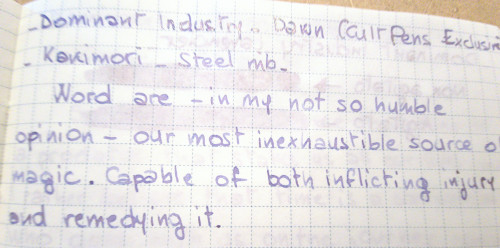 - Dominant Industry - Dawn (Cult Pens Exclusiv
- Kakimori - Steel nib -
Word are - in my not so humble
opinion - our most inexhaustible source o
magic. Capable of both inflicting injury
and remedying it.